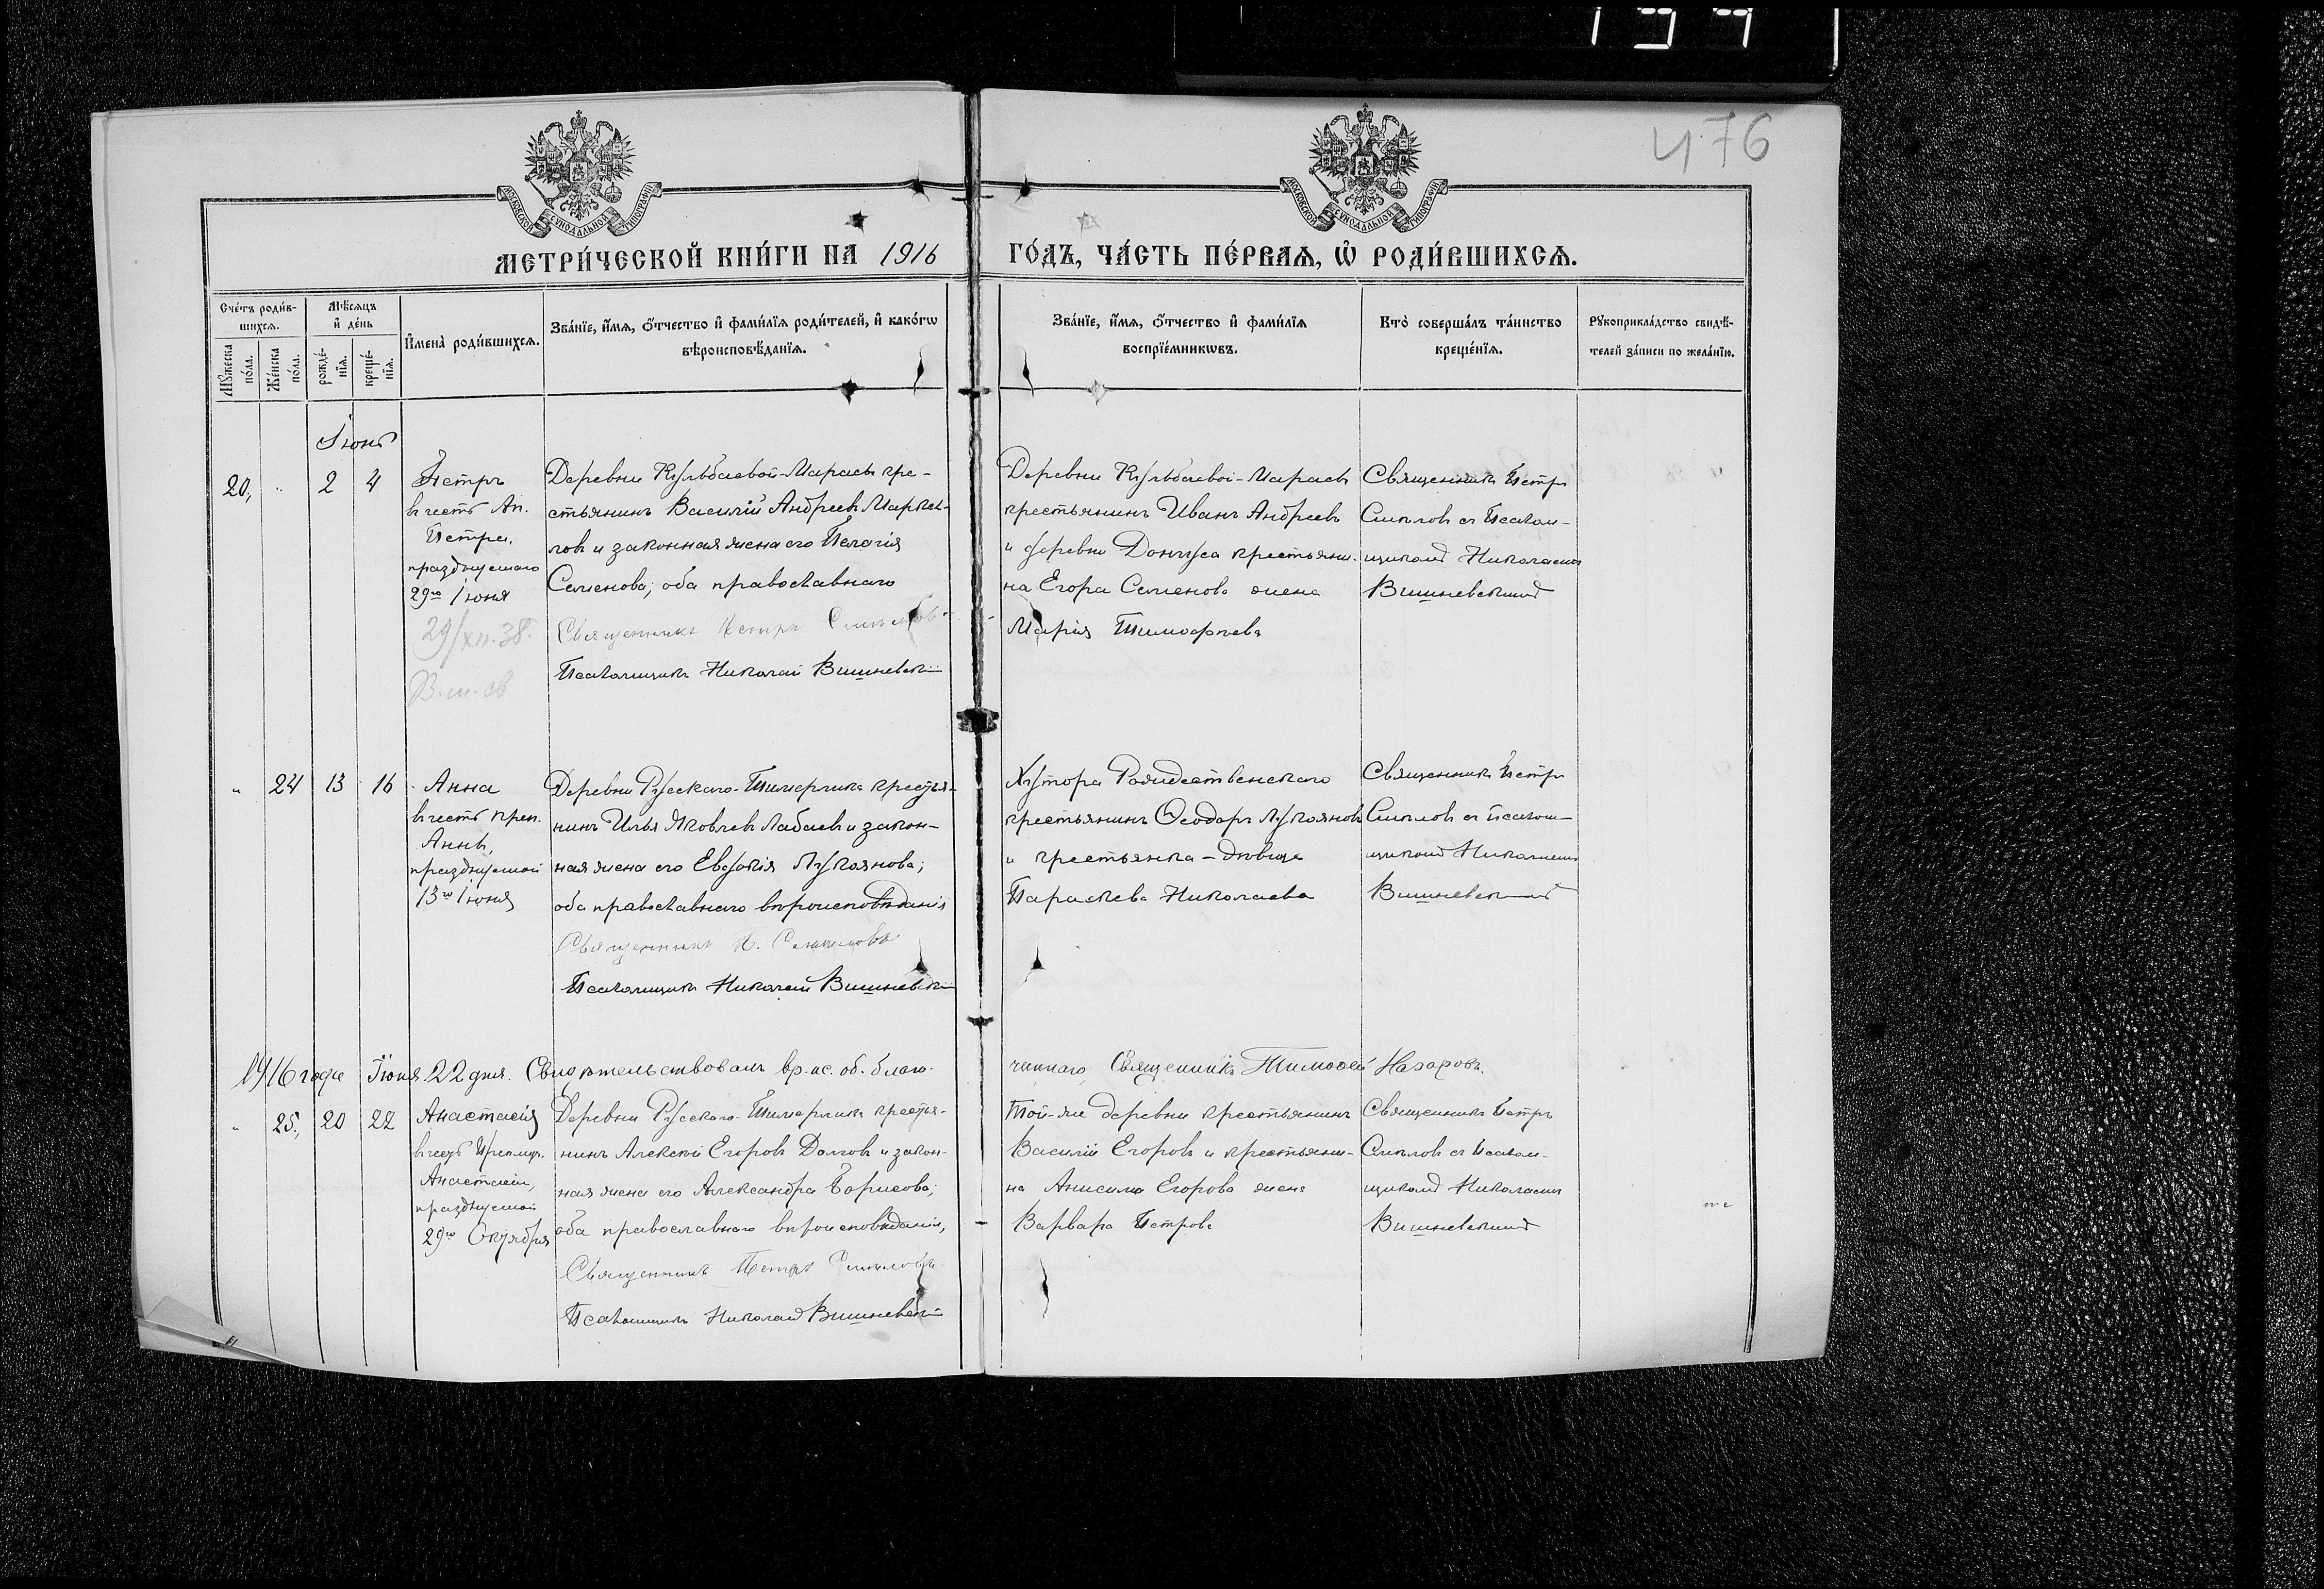 199
476
МОСКОВСКОЙ СУНОДАЛЬНОЙ ТИПОГРАФІИ
МОСКОВСКОЙ СУНОДАЛЬНОЙ ТИПОГРАФІИ
МЕТРИ́ЧЕСКОЙ КНИ́ГИ НА 1916 ГО́ДЪ, ЧА́СТЬ ПЕ́РВАѦ, Ѿ РОДИ́ВШИХСѦ.
Сче́тъ роди́в-
шихсѧ.
Мꙋ́жеска по́ла.
Же́нска по́ла.
Мѣ́сѧцъ
и҆ де́нь
рожде́-
нїѧ.
креще́-
нїѧ.
И҆мена̀ роди́вшихсѧ.
Зва́нїе, и҆́мѧ, ѻ҆́тчество и҆ фами́лїѧ роди́телей, и҆ како́гѡ
вѣроисповѣ́данїѧ.
Зва́нїе, и҆́мѧ, ѻ҆́тчество и҆ фами́лїѧ
воспрїе́мникѡвъ.
Кто̀ соверша́лъ та́инство
креще́нїѧ.
Рꙋкоприкла́дство свидѣ́-
телей за́писи по жела́нїю.
Іюнь
20, " 2 4
Петръ
въ честь Ап.
Петра,
празднуемаго
29го Іюня
29/XII.38.
Деревни Кульбаевой-Марасы кре-
стьянинъ Василій Андреевъ
и законная жена его Пелагія
Семенова; оба православнаго
Священникъ Петръ
Псаломщикъ Николай Вишневскій
Деревни Кульбаевой-Марасы
крестьянинъ Иванъ Андреевъ
и деревни крестьяни-
на Егора Семенова жена
Марія Тимофѣева
Священникъ Петръ
съ Псалом-
щикомъ Николаемъ
Вишневскимъ
" 24 13 16
Анна
въ честь преп.
Анны,
празднуемой
13го Іюня
Деревни Русскаго-Тимерлика крестья-
нинъ Илья Яковлевъ Лабаевъ и закон-
ная жена его Евдокія Лукоянова;
оба православнаго вѣроисповѣданія
Священникъ П.
Псаломщикъ Николай Вишневскій
Хутора Рождественскаго
крестьянинъ Ѳеодоръ Лукояновъ
и крестьянка-дѣвица
Параскева Николаева
Священникъ Петръ
съ Псалом-
щикомъ Николаемъ
Вишневскимъ
1916 года Іюня 22 дня. Свидѣтельствовалъ вр. ис. об. благо-
чиннаго, Священникъ Тимоѳей Назаровъ.
" 25, 20 22
Анастасія
въ честь
Анастасіи,
празднуемой
29го Октября
Деревни Русскаго-Тимерлика крестья-
нинъ Алексѣй Егоровъ Долговъ и закон-
ная жена его Александра Борисова;
оба православнаго вѣроисповѣданія,
Священникъ Петръ
Псаломщикъ Николай Вишневскій
Той-же деревни крестьянинъ
Василій Егоровъ и крестьяни-
на Анисима Егорова жена
Варвара Петрова
Священникъ Петръ
съ Псалом-
щикомъ Николаемъ
Вишневскимъ